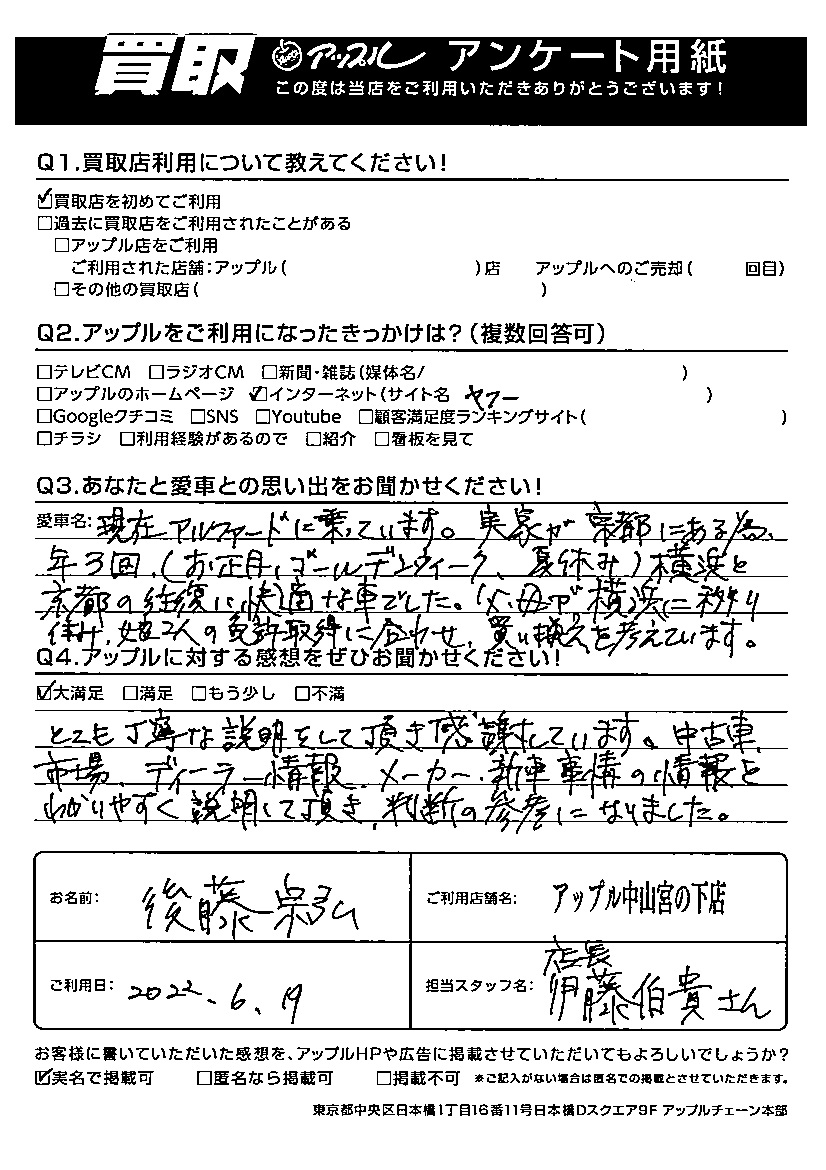 買取 アップル アンケート用紙
この度は当店をご利用いただきありがとうございます!
Q1.買取店利用について教えてください!
☑買取店を初めてご利用
□過去に買取店をご利用されたことがある
□アップル店をご利用
ご利用された店舗:アップル( )店 アップルへのご売却( 回目)
□その他の買取店( )
Q2.アップルをご利用になったきっかけは?(複数回答可)
□テレビCM □ラジオCM □新聞・雑誌(媒体名/ )
□アップルのホームページ ☑インターネット(サイト名 ヤフー )
□Googleクチコミ □SNS □Youtube □顧客満足度ランキングサイト( )
□チラシ □利用経験があるので □紹介 □看板を見て
Q3.あなたと愛車との思い出をお聞かせください!
愛車名: 現在アルファードに乗っています。実家が京都にある為、
年3回、(お正月、ゴールデンウィーク、夏休み)横浜と
京都の往復に快適な車でした。父、母が横浜に移り
住み、娘2人の免許取得に合わせ、買い換えを考えています。
Q4.アップルに対する感想をぜひお聞かせください!
☑大満足 □満足 □もう少し □不満
とても丁寧な説明をして頂き感謝しています。中古車
市場、ディーラー情報、メーカー、新車事情の情報を
わかりやすく説明して頂き、判断の参考になりました。
お名前: 後藤宗弘
ご利用店舗名: アップル中山宮の下店
ご利用日: 2022.6.19
担当スタッフ名: 店長 伊藤伯貴さん
お客様に書いていただいた感想を、アップルHPや広告に掲載させていただいてもよろしいでしょうか?
☑実名で掲載可 □匿名なら掲載可 □掲載不可 ※ご記入がない場合は匿名での掲載とさせていただきます。
東京都中央区日本橋1丁目16番11号日本橋Dスクエア9F アップルチェーン本部